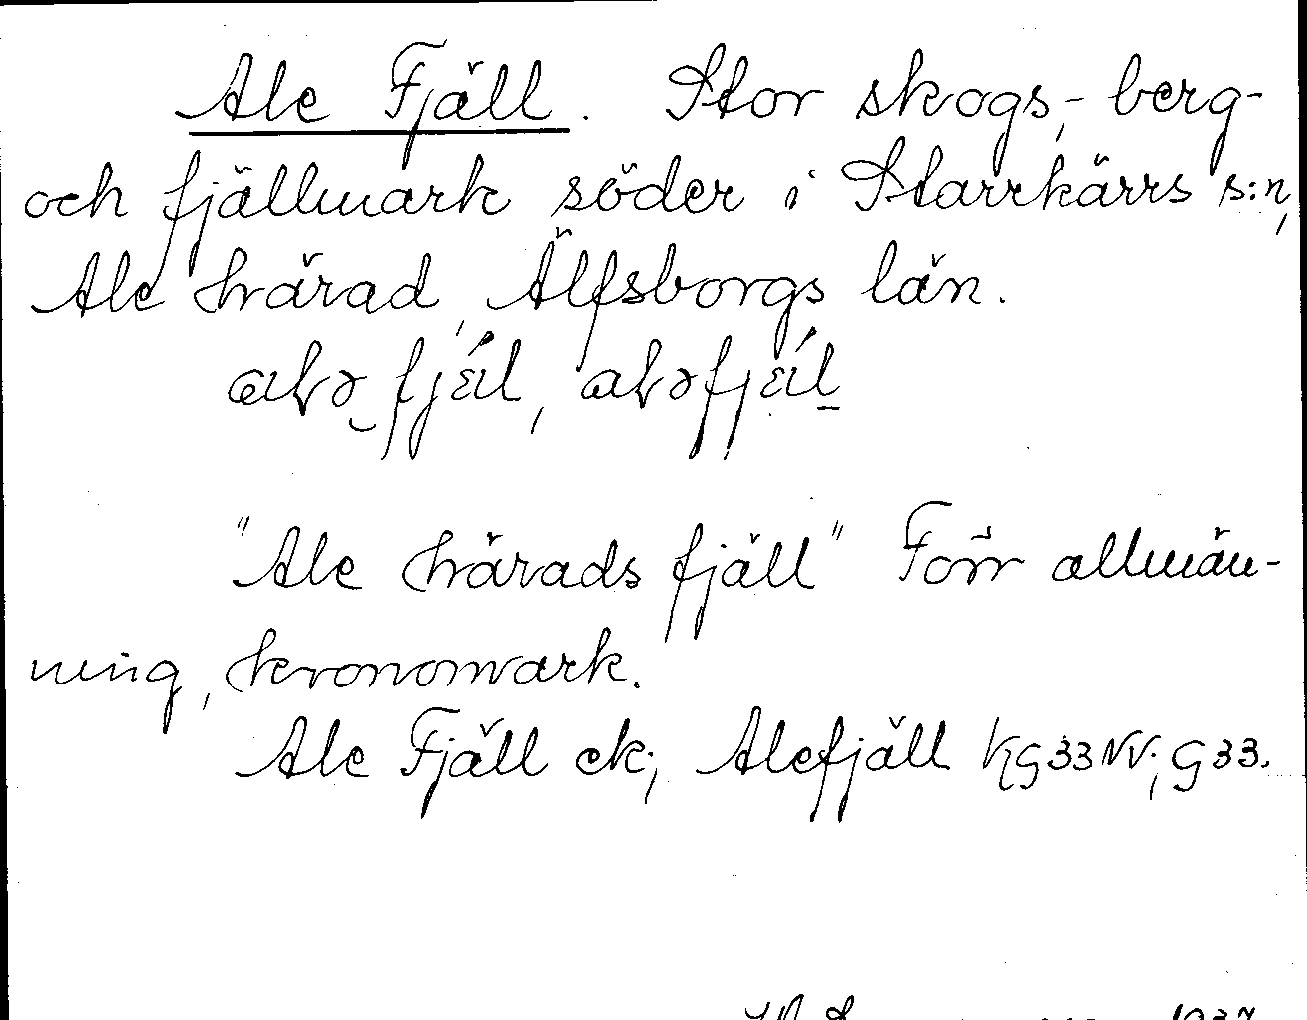 Ale Fjäll. Stor skogs-, berg-
och fjällmark söder i Starrkärrs s:n,
Ale härad, Älfsborgs län.
"Ale härads fjäll" Förr allmän-
ning, kronomark.
Ale Fjäll ek; Alefjäll KG33NV; G33.